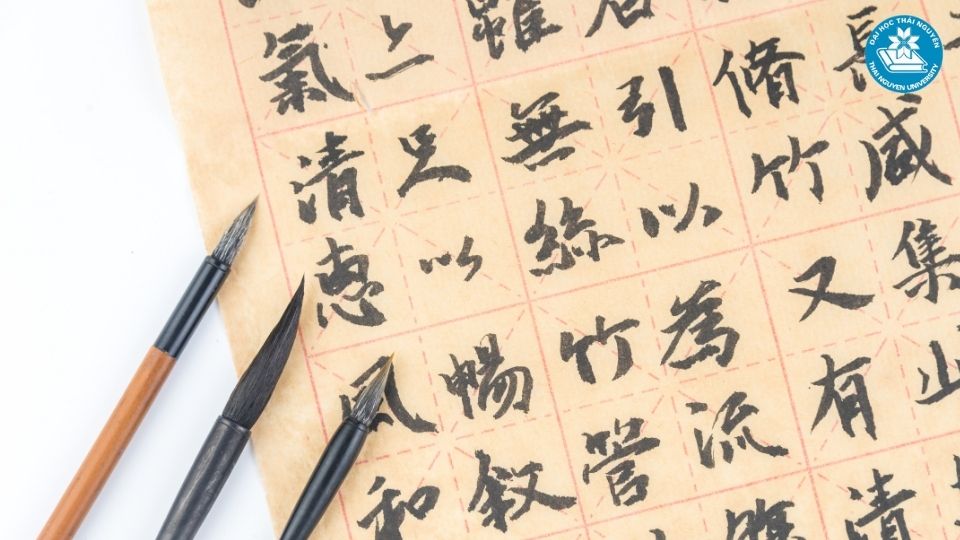 長咸集
脩竹又有清
引以為流
雖無絲竹管
上足以暢叙
氣清惠風和
ĐẠI HỌC THÁI NGUYÊN
THAI NGUYEN UNIVERSITY